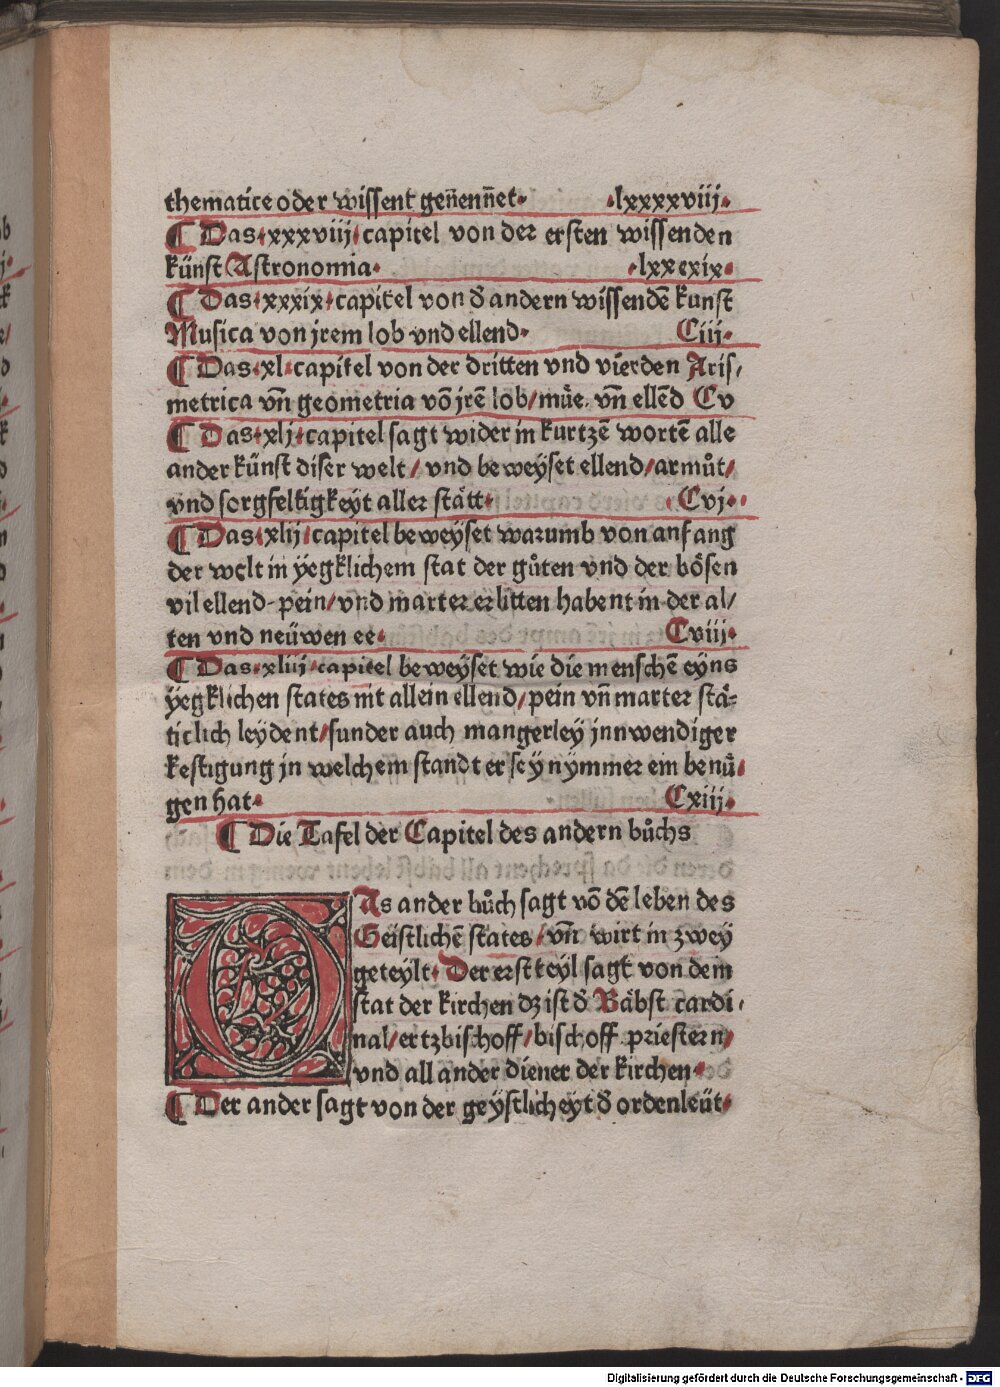 thematice oder wissent geñeñet· ·lxxxxviij·
¶ Das·xxxviij·capitel von der ersten wissenden
künst Astronomia· ·lxxexix·
¶ Das·xxxix·capitel von d̄ andern wissendē kunst
Musica von jrem lob vnd ellend· Ciij·
¶ Das·xl·capitel von der dritten vnd vierden Aris/
metrica vn̄ geometria vō jrē lob/müe. vn̄ ellēd Cv
¶ Das·xlj·capitel sagt wider in kurtzē wortē alle
ander künst diser welt/ vnd beweyset ellend/armůt/
vnd sorgfeltigkeyt aller stätt· Cvj·
¶ Das·xlij·capitel beweyset warumb von anfang
der welt in yegklichem stat der gůten vnd der bösen
vil ellend-pein/vnd marter erlitten habent in der al/
ten vnd neüwen ee· Cviij·
¶ Das·xliij·capitel beweyset wie die menschē eyns
yegklichen states nit allein ellend/pein vn̄ marter stä-
ticlich leydent/sunder auch mangerley jnnwendiger
kestigung jn welchem standt er sey nymmer ein benů·
gen hat· Cxiij·
¶ Die Tafel der Capitel des andern bůchs
DAs ander bůch sagt vō dē leben des
Geistlichē states/vn̄ wirt in zwey
geteylt· Der erst teyl sagt von dem
stat der kirchen dz ist d̄ Bäbst cardi·
nal/ertzbischoff/bischoff priestern/
vnd all ander diener der kirchen·
¶ Der ander sagt von der geystlicheyt d̄ ordenleüt·
Digitalisierung gefördert durch die Deutsche Forschungsgemeinschaft - DFG